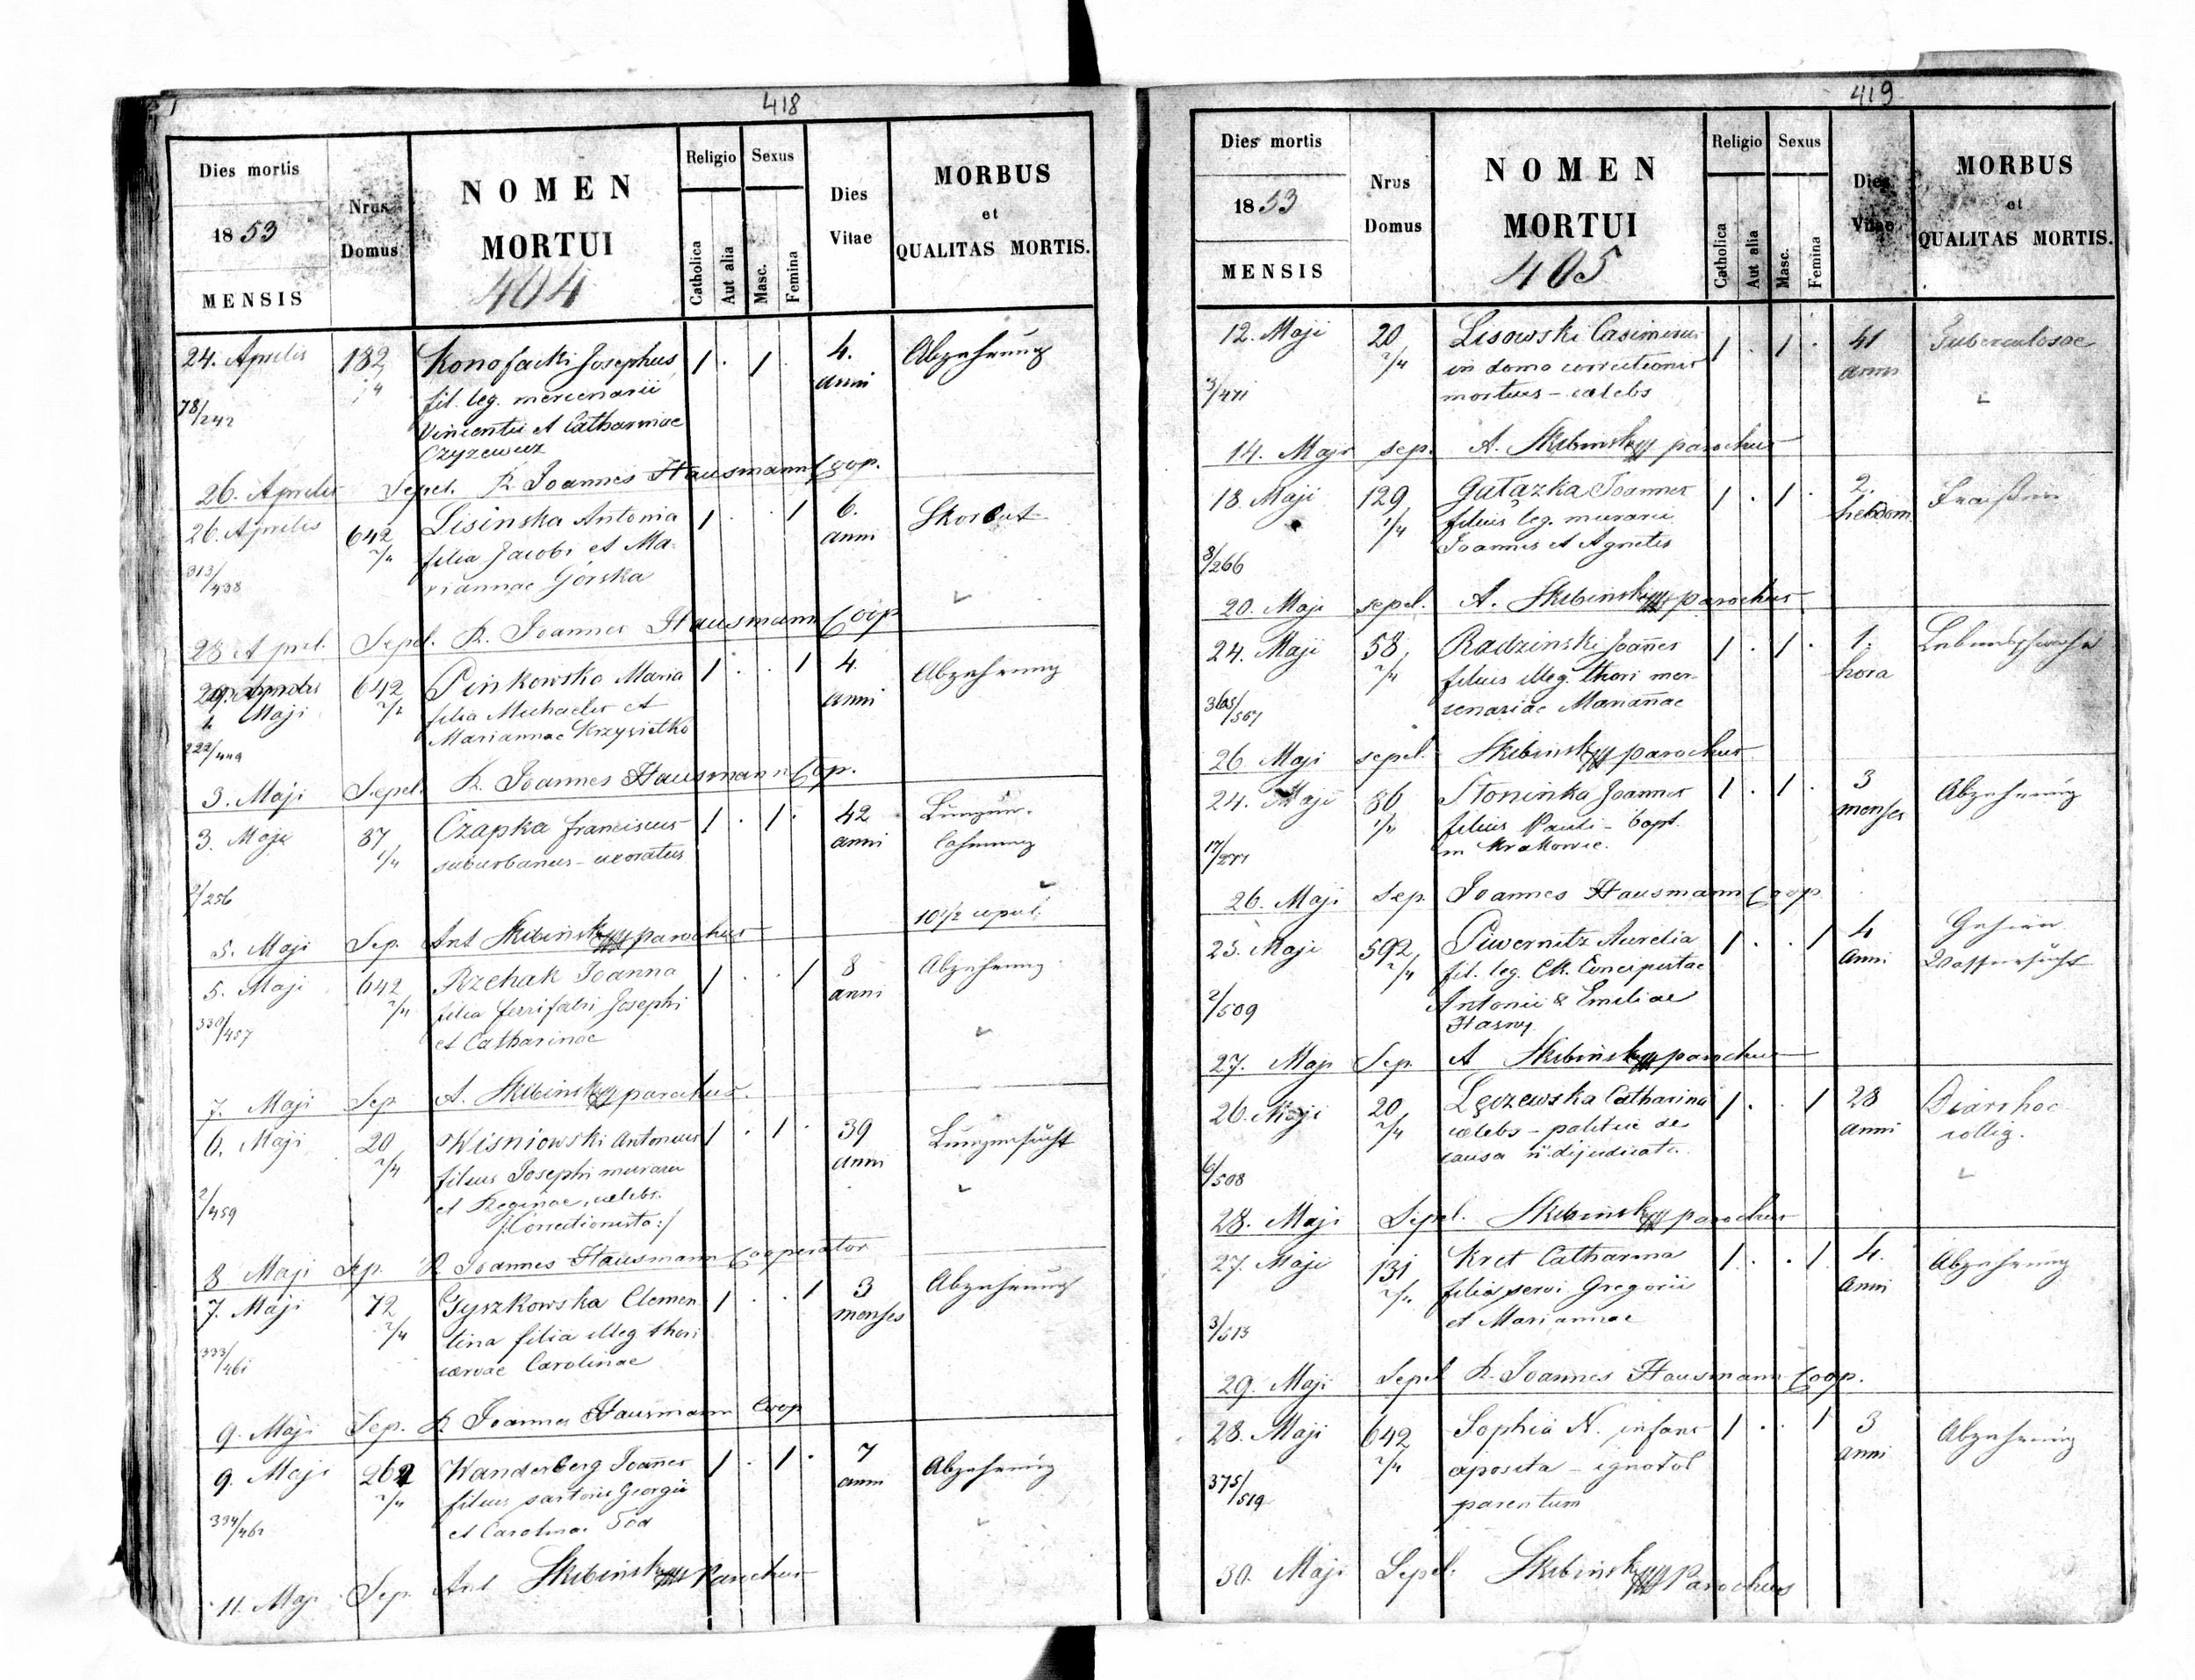 418
Dies mortis
1853
MENSIS
Nrus
Domus
NOMEN
MORTUI
404
Religio
Catholica
Aut alia
Sexus
Masc.
Femina
Dies
Vitae
MORBUS
et
QUALITAS MORTIS.
24. Aprilis 182 Konofacki Josephus 1 . 1 . 4. Abzehrung
fil. leg. mercenarii anni
78/242 Vincentii et Catharinae
Czyzewicz
26. Aprilis Sepel. R. Joannes Hausmann Coop.
26. Aprilis 642 Lisinska Antonia 1 . . 1 6. Skorbut
2/4 filia Jacobi et Ma- anni
313/438 riannae Górska
28 April. Sepel. R. Joannes Hausmann Coop
1 Maji 642 Pinkowska Maria 1 . . 1 4 Abzehrung
filia Michaelis et anni
Mariannae Krzysietko
3. Maji Sepel. R. Joannes Hausmann Cop.
3. Maji 87 Czapka Franciscus 1 . 1 . 42 Lungen-
1/4 suburbanus - uxoratus anni lähmung
2/256
10 1/2
5. Maji Sep. Ant Skibinsky parochus
5. Maji 642 Rzehak Joanna 1 . . 1 8 Abzehrung
2/4 filia ferrifabri Josephi anni
330/457 et Catharinae
7. Maji Sep A. Skibinsky parochus.
6. Maji 20 Wisniowski Antonius 1 . 1 . 39 Lungensucht
2/4 filius Josephi murarii anni
2/459 et Reginae, caelebs.
/:Correctionista:/
8 Maji Sep. R Joannes Hausmann Cooperator
7. Maji 72 Gyszkowska Clemen 1 . . 1 3 Abzehrung
2/4 tina filia illeg thori menses
333/461 servae Carolinae
9. Maji Sep. R Joannes Hausmann Coop
9. Maji 262 Wanderberg Joannes 1 . 1 . 7 Abzehrung
2/4 filius sartoris Georgii anni
334/462 et Carolinae
11. Maji Sep. Ant Skibinsky Parochus
419
Dies mortis
1853
MENSIS
Nrus
Domus
NOMEN
MORTUI
405
Religio
Catholica
Aut alia
Sexus
Masc.
Femina
Dies
Vitae
MORBUS
et
QUALITAS MORTIS.
12. Maji 20 Lisowski Casimirus 1 . 1 . 41 Tuberculosae
2/4 in domo correctionis anni
3/471 mortuus - caelebs
14. Maji sep. A. Skibinsky parochus
18 Maji 129 Gałązka Joannes 1 . 1 . 2. Fraißen
1/4 filius leg. murarii hebdom.
8/266 Joannis et Agnetis
20. Maji sepel. A. Skibinsky parochus
24. Maji 58 Radzinski Joannes 1 . 1 . 1. Lebensschwäche
2/4 filius illeg. thori mer- hora
365/507 cenariae Mariannae
26. Maji sepel. Skibinsky parochus
24. Maji 86 Słoninka Joannes 1 . 1 . 3 Abzehrung
1/4 filius Pauli - bapt. menses
17/277 in Krakowie.
26. Maji Sep. Joannes Hausmann Coop
25. Maji 592 Piwernitz Aurelia 1 . . 1 4 Gehirn
2/4 fil. leg. CR. Concipistae anni Wassersucht
2/509 Antonii & Emiliae
Hasny
27. Maji Sep. A Skibinsky parochus
26. Maji 20 Lęczewska Catharina 1 . . 1 28 Diarrhoe
2/4 caelebs - politiae de anni collig.
6/508 causa ñ. dijudicata
28. Maji Sepel. Skibinsky parochus
27. Maji 131 Kret Catharina 1 . . 1 4. Abzehrung
2/4 filia servi Gregorii anni
3/513 et Mariannae
29. Maji Sepel R. Joannes Hausmann Coop.
28. Maji 642 Sophia N. infans 1 . . 1 3 Abzehrung
2/4 aposita - ignotor anni
375/519 parentum
30. Maji Sepel. Skibinsky Parochus